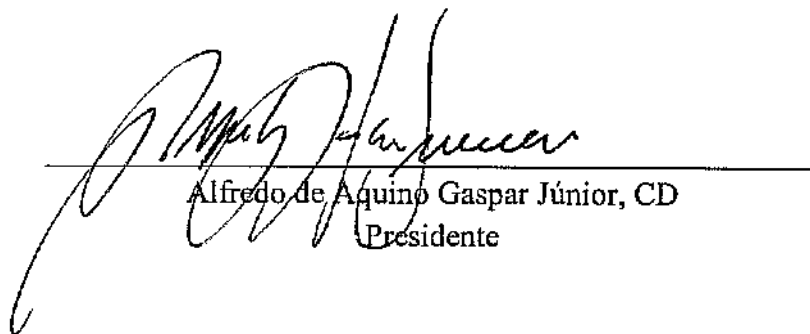 Alfredo de Aquino Gaspar Júnior, CD
Presidente